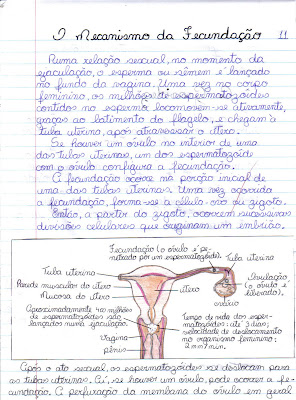 O Mecanismo da Fecundação 11
Numa relação sexual, no momento da
ejaculação, o esperma ou sêmen é lançado
no fundo da vagina. Uma vez no corpo
feminino, os milhões de espermatozóides
contidos no esperma locomovem-se ativamente,
graças ao batimento do flagelo, e chegam à
tuba uterina, após atravessar o útero.
Se houver um óvulo no interior de uma
das tubas uterinas, um dos espermatozóides
com o óvulo configura a fecundação.
A fecundação ocorre na porção inicial de
uma das tubas uterinas. Uma vez ocorrida
a fecundação, forma-se a célula-ovo ou zigoto.
Então, a partir do zigoto, ocorrem sucessivas
divisões celulares que originam um embrião.
Fecundação (o óvulo é pe-
netrado por um espermatozóide).
Tuba uterina
Tuba uterina
Parede muscular do útero
Mucosa do útero
útero
Ovulação
(o óvulo é
liberado).
ovário
Aproximadamente 400 milhões
de espermatozóides são
lançados numa ejaculação.
Tempo de vida dos esper-
matozóides: até 3 dias;
velocidade de deslocamento
no organismo feminino:
2 mm/min.
vagina
pênis
Após o ato sexual, os espermatozóides se deslocam para
as tubas uterinas. Aí, se houver um óvulo, pode ocorrer a fe-
cundação. A perfuração da membrana do óvulo em geral